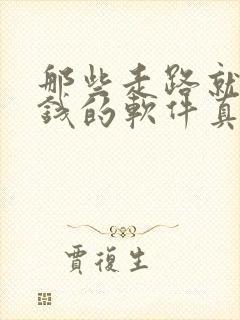 那些走路就
錢的軟件真
賈復生